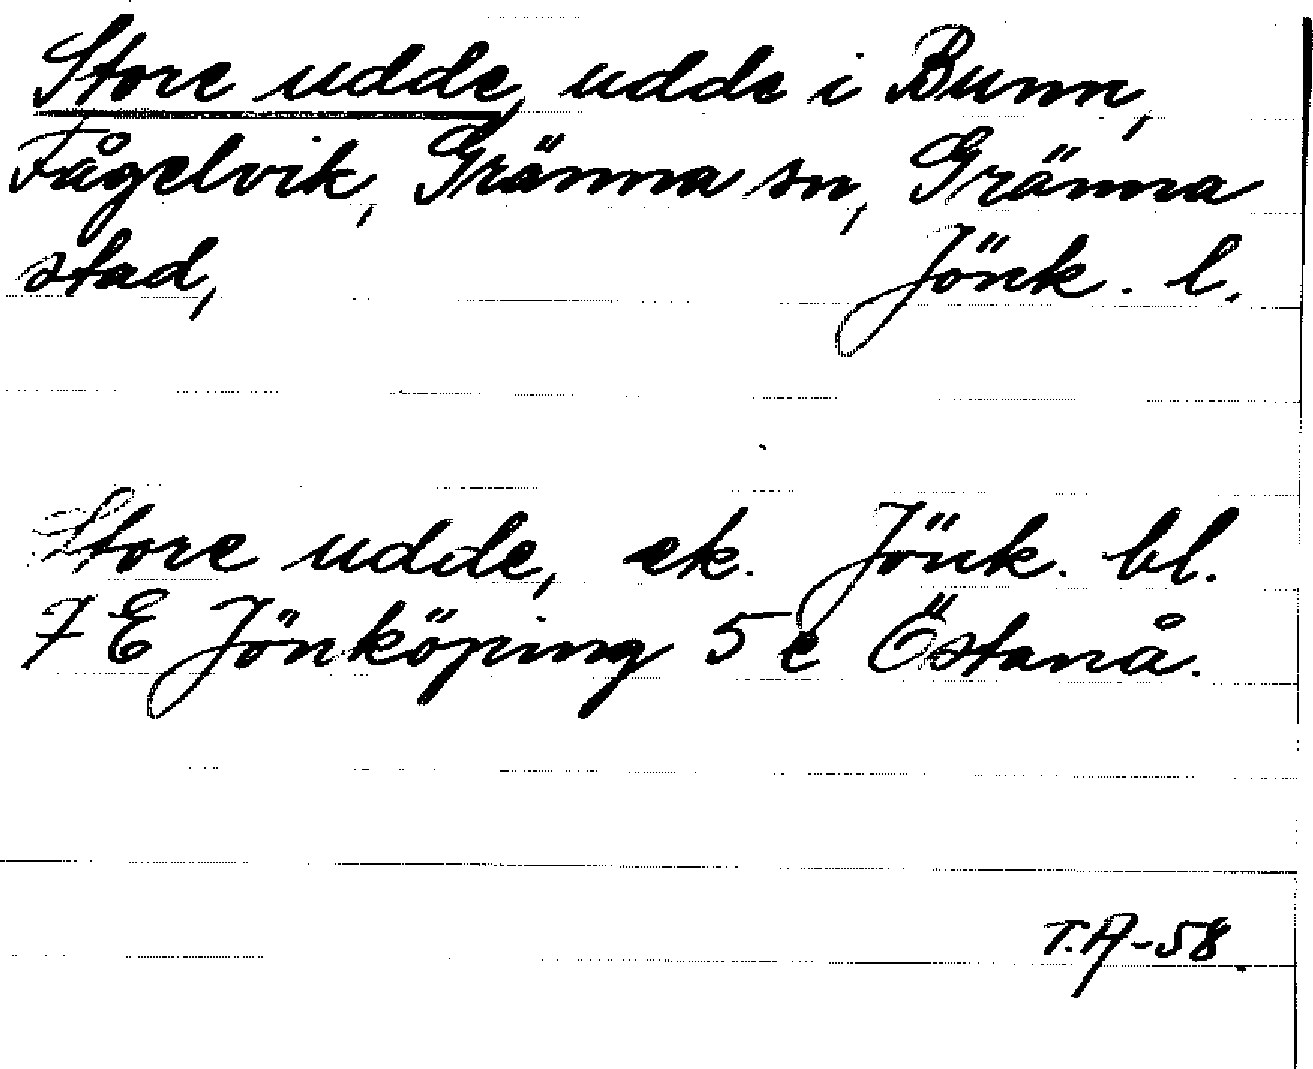 Store udde, udde i Bunn,
Fågelvik, Gränna sn, Gränna
stad, Jönk. l.
Store udde, ek. Jönk. bl.
7 E Jönköping 5 e Östanå.
T.A-58.